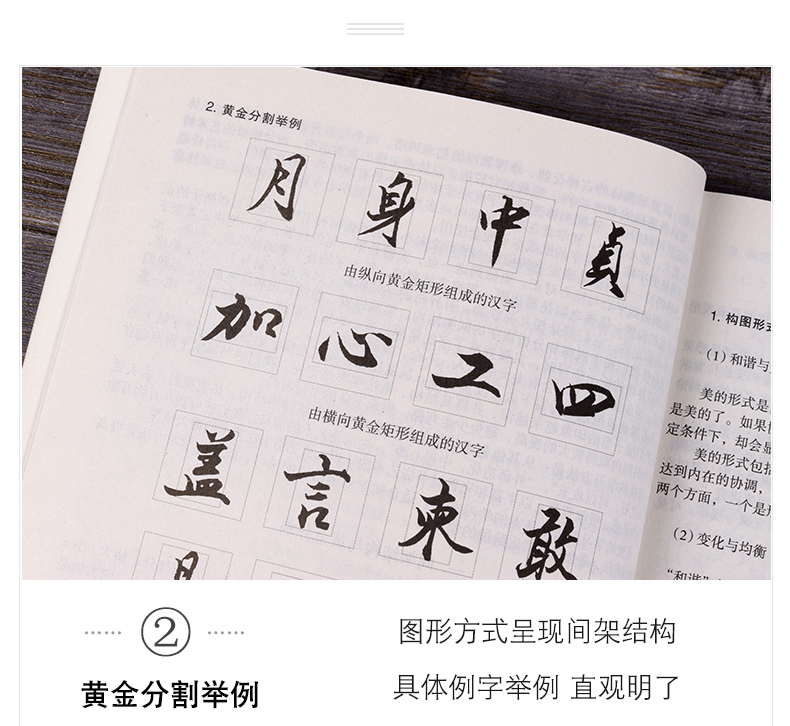 2. 黄金分割举例
月 身 中 贞
由纵向黄金矩形组成的汉字
加 心 工 四
由横向黄金矩形组成的汉字
盖 言 柬 敢
1. 构图形式
(1) 和谐与
美的形式是
是美的了。如果
定条件下，却会显
美的形式包括
达到内在的协调，
两个方面，一个是形
(2) 变化与均衡
“和谐”
② 图形方式呈现间架结构
黄金分割举例 具体例字举例 直观明了